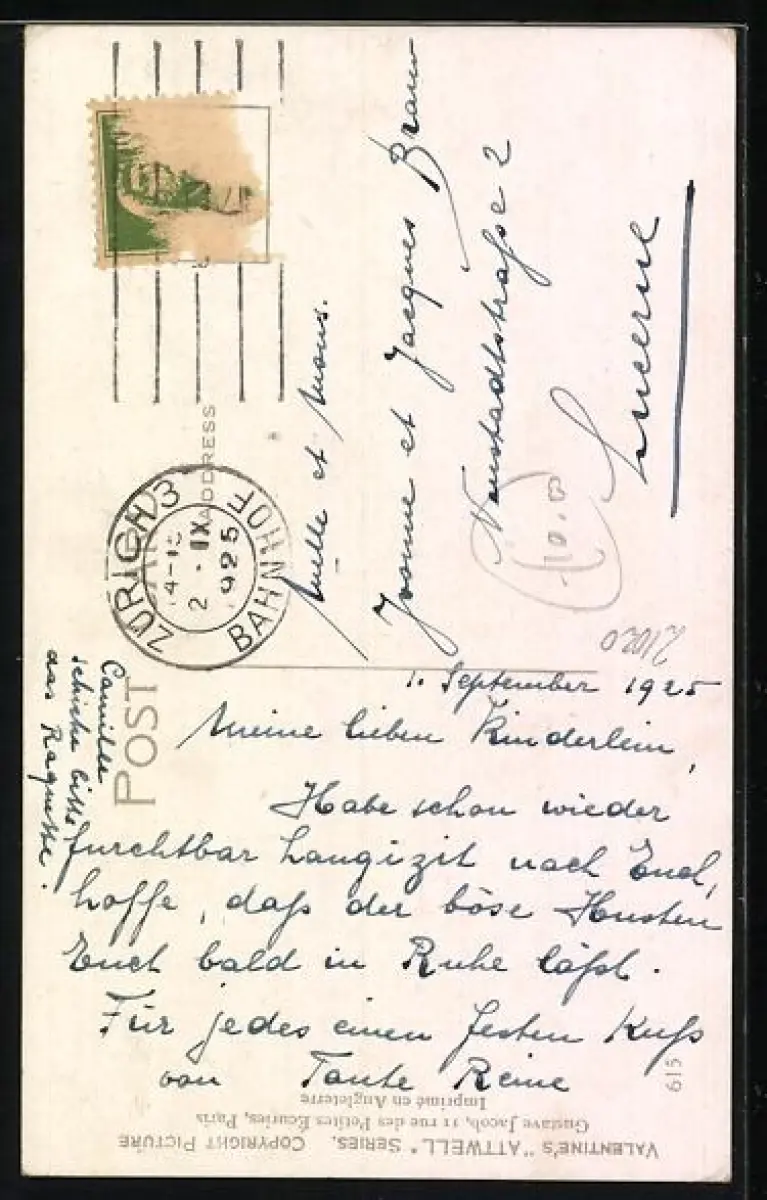 POST
ADDRESS
ZÜRICH 3
2. IX
1925
BAHNHOF
Mlle et Mons.
Yvonne et Jacques Braun
Neustadtstraße 2
Lucerne
10.00
21020
1. September 1925
Meine lieben Kinderlein,
Habe schon wieder
furchtbar Langizit nach Euch,
hoffe, daß der böse Husten
Euch bald in Ruhe läßt.
Für jedes einen festen Kuß
von Tante Reine
schicke bitte
das Raquette.
615
VALENTINE'S "ATTWELL" SERIES. COPYRIGHT PICTURE
Gustave Jacob, 11 rue des Petites Écuries, Paris
Imprimé en Angleterre